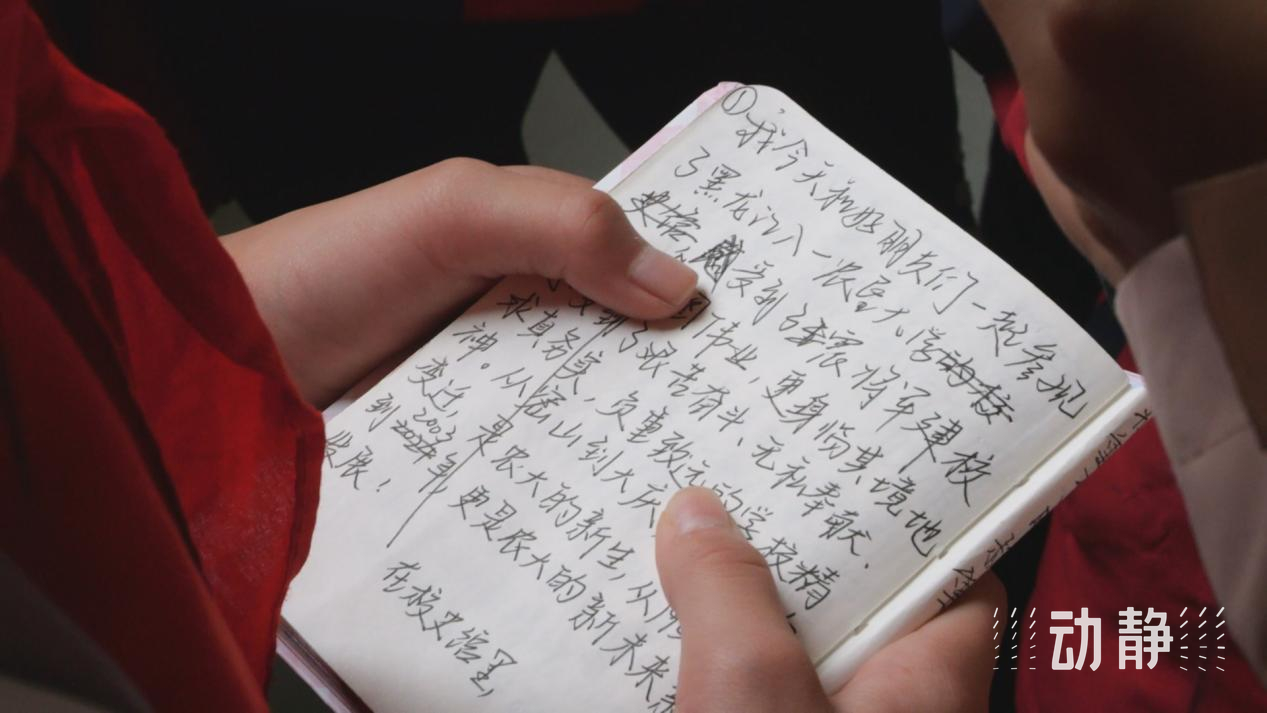 ①
我今天和好朋友们一起参观
了黑龙江八一农垦大学的校
史馆, 感受到了王震将军建校
伟业,更身临其境地
受到了艰苦奋斗、无私奉献、
求真务实,负重致远的学校精
神。从密山到大庆
变迁,是农大的新生,从
到2024年,更是农大的新未来,
发展!
在校史馆里,
动静